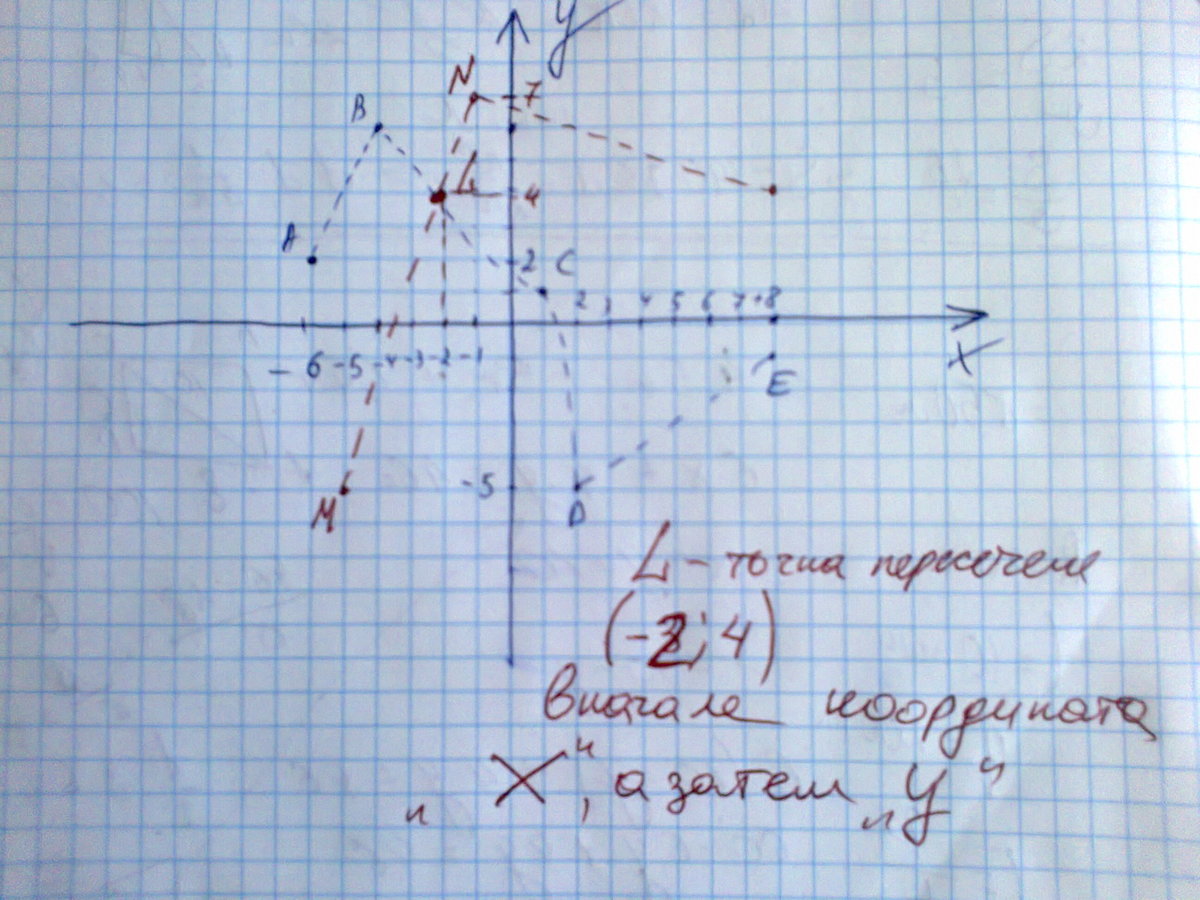 y
N 7
B
L 4
A
2 C
2 3 4 5 6 7 8
-6 -5 -4 -3 -2 -1
X
E
-5
M
D
L - точка пересечене
(-2; 4)
Вначале координата
„X", а затем „y"